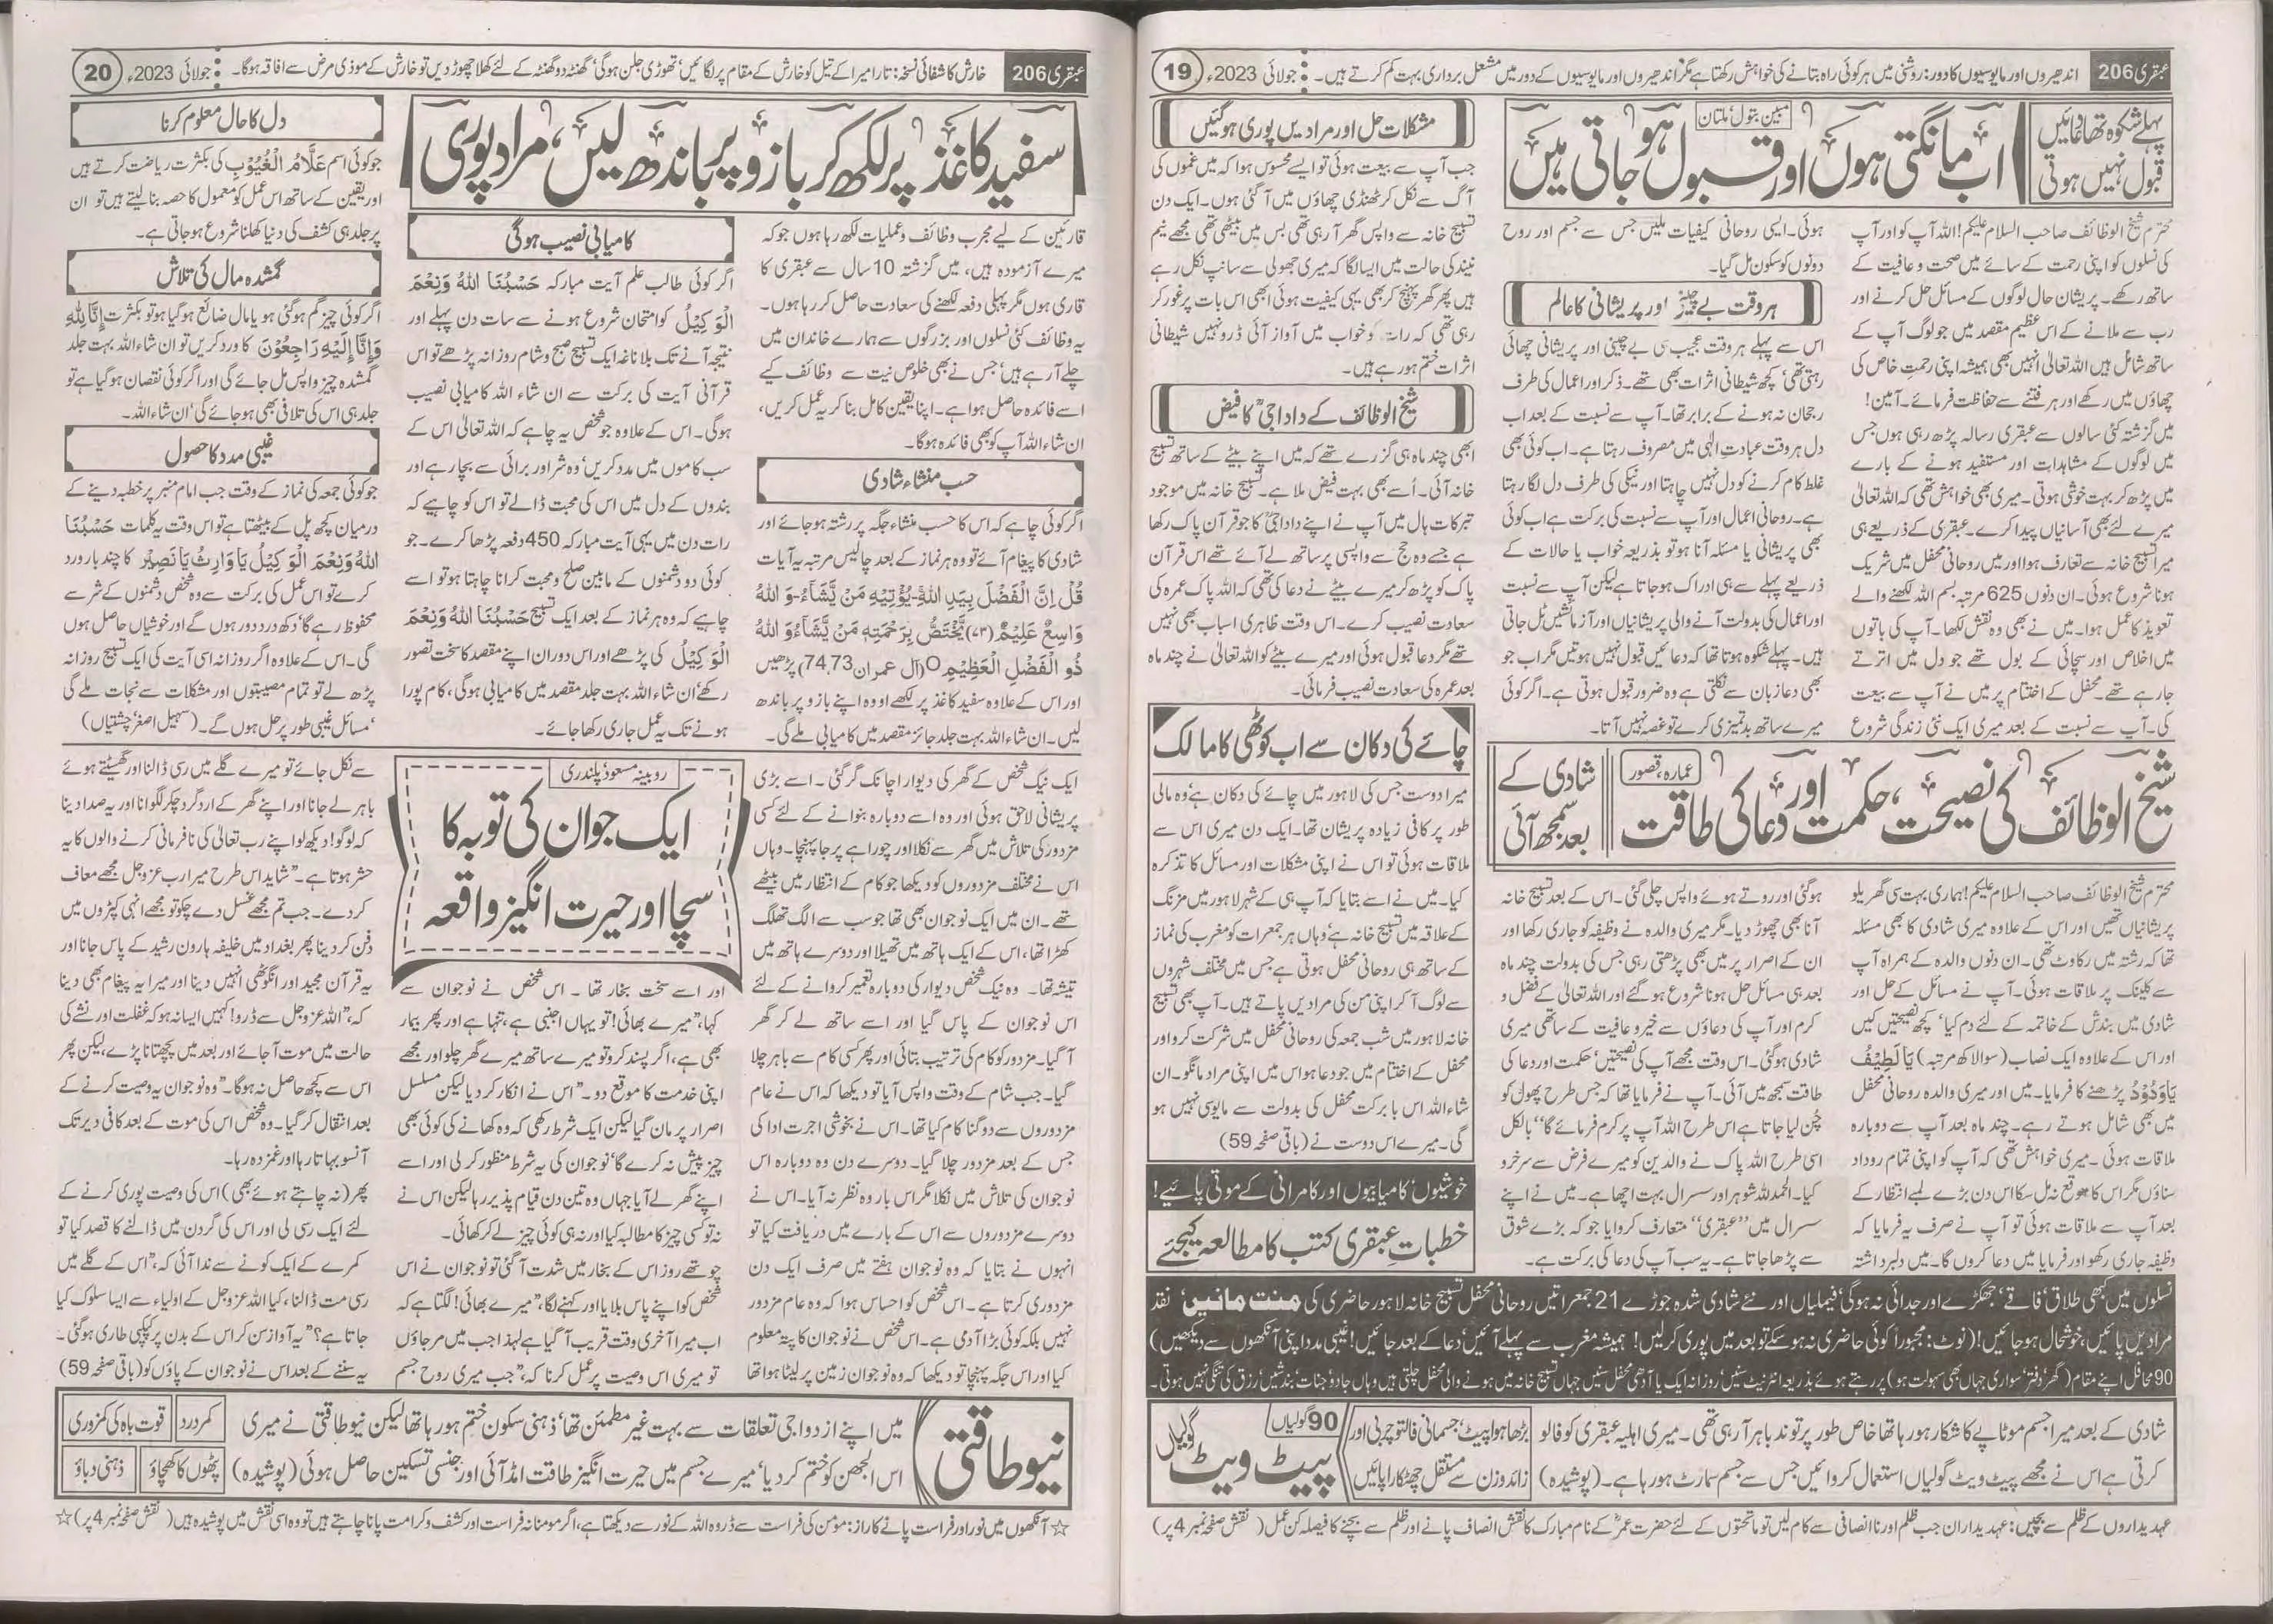 عبقری 206
اندھیروں اور مایوسیوں کا دور: روشنی میں ہر کوئی راہ بتانے کی خواہش رکھتا ہے مگر اندھیروں اور مایوسیوں کے دور میں مشعل برداری بہت کم کرتے ہیں۔
جولائی 2023ء
19
پہلے شکوہ تھا دعائیں
قبول نہیں ہوتی
مبین بتول، ملتان
اب مانگتی ہوں اور قبول ہو جاتی ہیں
محترم شیخ الوظائف صاحب السلام علیکم! اللہ آپ کو اور آپ
کی نسلوں کو اپنی رحمت کے سائے میں صحت و عافیت کے
ساتھ رکھے۔ پریشان حال لوگوں کے مسائل حل کرنے اور
رب سے ملانے کے اس عظیم مقصد میں جو لوگ آپ کے
ساتھ شامل ہیں اللہ تعالیٰ انہیں بھی ہمیشہ اپنی رحمتِ خاص کی
چھاؤں میں رکھے اور ہر فتنے سے حفاظت فرمائے۔ آمین!
میں گزشتہ کئی سالوں سے عبقری رسالہ پڑھ رہی ہوں جس
میں لوگوں کے مشاہدات اور مستفید ہونے کے بارے
میں پڑھ کر بہت خوشی ہوتی۔ میری بھی خواہش تھی کہ اللہ تعالیٰ
میرے لئے بھی آسانیاں پیدا کرے۔ عبقری کے ذریعے ہی
میرا تسبیح خانہ سے تعارف ہوا اور میں روحانی محفل میں شریک
ہونا شروع ہوئی۔ ان دنوں 625 مرتبہ بسم اللہ لکھنے والے
تعویذ کا عمل ہوا۔ میں نے بھی وہ نقش لکھا۔ آپ کی باتوں
میں اخلاص اور سچائی کے بول تھے جو دل میں اترتے
جا رہے تھے۔ محفل کے اختتام پر میں نے آپ سے بیعت
کی۔ آپ سے نسبت کے بعد میری ایک نئی زندگی شروع
ہوئی۔ ایسی روحانی کیفیات ملیں جس سے جسم اور روح
دونوں کو سکون مل گیا۔
ہر وقت بے چینی اور پریشانی کا عالم
اس سے پہلے ہر وقت عجیب سی بے چینی اور پریشانی چھائی
رہتی تھی‘ کچھ شیطانی اثرات بھی تھے۔ ذکر اور اعمال کی طرف
رجحان نہ ہونے کے برابر تھا۔ آپ سے نسبت کے بعد اب
دل ہر وقت عبادتِ الٰہی میں مصروف رہتا ہے۔ اب کوئی بھی
غلط کام کرنے کو دل نہیں چاہتا اور نیکی کی طرف دل لگا رہتا
ہے۔ روحانی اعمال اور آپ سے نسبت کی برکت ہے اب کوئی
بھی پریشانی یا مسئلہ آنا ہو تو بذریعہ خواب یا حالات کے
ذریعے پہلے سے ہی ادراک ہو جاتا ہے لیکن آپ سے نسبت
اور اعمال کی بدولت آنے والی پریشانیاں اور آزمائشیں ٹل جاتی
ہیں۔ پہلے شکوہ ہوتا تھا کہ دعائیں قبول نہیں ہوتیں مگر اب جو
بھی دعا زبان سے نکلتی ہے وہ ضرور قبول ہوتی ہے۔ اگر کوئی
میرے ساتھ بدتمیزی کرے تو غصہ نہیں آتا۔
مشکلات حل اور مرادیں پوری ہو گئیں
جب آپ سے بیعت ہوئی تو ایسے محسوس ہوا کہ میں غموں کی
آگ سے نکل کر ٹھنڈی چھاؤں میں آ گئی ہوں۔ ایک دن
تسبیح خانہ سے واپس گھر آ رہی تھی بس میں بیٹھی تھی مجھے نیم
نیند کی حالت میں ایسا لگا کہ میری جھولی سے سانپ نکل رہے
ہیں پھر گھر پہنچ کر بھی یہی کیفیت ہوئی ابھی اس بات پر غور کر
رہی تھی کہ رات کو خواب میں آواز آئی ڈرو نہیں شیطانی
اثرات ختم ہو رہے ہیں۔
شیخ الوظائف کے دادا جیؒ کا فیض
ابھی چند ماہ ہی گزرے تھے کہ میں اپنے بیٹے کے ساتھ تسبیح
خانہ آئی۔ اُسے بھی بہت فیض ملا ہے۔ تسبیح خانہ میں موجود
تبرکات ہال میں آپ نے اپنے دادا جیؒ کا جو قرآن پاک رکھا
ہے جسے وہ حج سے واپسی پر ساتھ لے آئے تھے اس قرآن
پاک کو پڑھ کر میرے بیٹے نے دعا کی تھی کہ اللہ پاک عمرہ کی
سعادت نصیب کرے۔ اس وقت ظاہری اسباب بھی نہیں
تھے مگر دعا قبول ہوئی اور میرے بیٹے کو اللہ تعالیٰ نے چند ماہ
بعد عمرہ کی سعادت نصیب فرمائی۔
شادی کے
بعد سمجھ آئی
عمارہ، قصور
شیخ الوظائف کی نصیحت، حکمت اور دعا کی طاقت
محترم شیخ الوظائف صاحب السلام علیکم! ہماری بہت سی گھریلو
پریشانیاں تھیں اور اس کے علاوہ میری شادی کا بھی مسئلہ
تھا کہ رشتہ میں رکاوٹ تھی۔ ان دنوں والدہ کے ہمراہ آپ
سے کلینک پر ملاقات ہوئی۔ آپ نے مسائل کے حل اور
شادی میں بندش کے خاتمہ کے لئے دم کیا‘ کچھ نصیحتیں کیں
اور اس کے علاوہ ایک نصاب (سوا لاکھ مرتبہ) یَا لَطِیْفُ
یَا وَدُوْدُ پڑھنے کا فرمایا۔ میں اور میری والدہ روحانی محفل
میں بھی شامل ہوتے رہے۔ چند ماہ بعد آپ سے دوبارہ
ملاقات ہوئی۔ میری خواہش تھی کہ آپ کو اپنی تمام روداد
سناؤں مگر اس کا موقع نہ مل سکا اس دن بڑے لمبے انتظار کے
بعد آپ سے ملاقات ہوئی تو آپ نے صرف یہ فرمایا کہ
وظیفہ جاری رکھو اور فرمایا میں دعا کروں گا۔ میں دلبرداشتہ
ہو گئی اور روتے ہوئے واپس چلی گئی۔ اس کے بعد تسبیح خانہ
آنا بھی چھوڑ دیا۔ مگر میری والدہ نے وظیفہ کو جاری رکھا اور
ان کے اصرار پر میں بھی پڑھتی رہی جس کی بدولت چند ماہ
بعد ہی مسائل حل ہونا شروع ہو گئے اور اللہ تعالیٰ کے فضل و
کرم اور آپ کی دعاؤں سے خیر و عافیت کے ساتھ ہی میری
شادی ہو گئی۔ اس وقت مجھے آپ کی نصیحتیں‘ حکمت اور دعا کی
طاقت سمجھ میں آئی۔ آپ نے فرمایا تھا کہ جس طرح پھول کو
چُن لیا جاتا ہے اس طرح اللہ آپ پر کرم فرمائے گا“ بالکل
اسی طرح اللہ پاک نے والدین کو میرے فرض سے سرخرو
کیا۔ الحمدللہ شوہر اور سسرال بہت اچھا ہے۔ میں نے اپنے
سسرال میں ”عبقری“ متعارف کروایا جو کہ بڑے شوق
سے پڑھا جاتا ہے۔ یہ سب آپ کی دعا کی برکت ہے۔
چائے کی دکان سے اب کوٹھی کا مالک
میرا دوست جس کی لاہور میں چائے کی دکان ہے‘ وہ مالی
طور پر کافی زیادہ پریشان تھا۔ ایک دن میری اس سے
ملاقات ہوئی تو اس نے اپنی مشکلات اور مسائل کا تذکرہ
کیا۔ میں نے اسے بتایا کہ آپ ہی کے شہر لاہور میں مزنگ
کے علاقہ میں تسبیح خانہ ہے‘ وہاں ہر جمعرات کو مغرب کی نماز
کے ساتھ ہی روحانی محفل ہوتی ہے جس میں مختلف شہروں
سے لوگ آ کر اپنی من کی مرادیں پاتے ہیں۔ آپ بھی تسبیح
خانہ لاہور میں شب جمعہ کی روحانی محفل میں شرکت کرو اور
محفل کے اختتام میں جو دعا ہو اس میں اپنی مراد مانگو۔ ان
شاء اللہ اس بابرکت محفل کی بدولت سے مایوسی نہیں ہو
گی۔ میرے اس دوست نے (باقی صفحہ 59)
خوشیوں‘ کامیابیوں اور کامرانی کے موتی پائیے!
خطباتِ عبقری کتب کا مطالعہ کیجئے
نسلوں میں کبھی طلاق‘ فاقے‘ جھگڑے اور جدائی نہ ہوگی‘ فیملیاں اور نئے شادی شدہ جوڑے 21 جمعراتیں روحانی محفل تسبیح خانہ لاہور حاضری کی منت مانیں‘ نقد
مرادیں پائیں‘ خوشحال ہو جائیں! (نوٹ: مجبوراً کوئی حاضری نہ ہو سکے تو بعد میں پوری کر لیں! ہمیشہ مغرب سے پہلے آئیں‘ دعا کے بعد جائیں! غیبی مدد اپنی آنکھوں سے دیکھیں)
90 محافل اپنے مقام (گھر‘ دفتر‘ سواری جہاں بھی سہولت ہو) پر رہتے ہوئے بذریعہ انٹرنیٹ سنیں‘ روزانہ ایک یا آدھی محفل سنیں جہاں تسبیح خانہ میں ہونے والی محفل چلتی ہیں وہاں جادو‘ جنات‘ بندشیں‘ رزق کی تنگی نہیں ہوتی۔
شادی کے بعد میرا جسم موٹاپے کا شکار ہو رہا تھا خاص طور پر توند باہر آ رہی تھی۔ میری اہلیہ عبقری کو فالو
کرتی ہے اس نے مجھے پیٹ ویٹ گولیاں استعمال کروائیں جس سے جسم سمارٹ ہو رہا ہے۔ (پوشیدہ)
بڑھا ہوا پیٹ‘ جسمانی فالتو چربی اور
زائد وزن سے مستقل چھٹکارا پائیں
90 گولیاں
پیٹ ویٹ گولیاں
عہدیداروں کے ظلم سے بچیں: عہدیداران جب ظلم اور ناانصافی سے کام لیں تو ماتحتوں کے لئے حضرت عمرؓ کے نام مبارک کا نقش انصاف پانے اور ظلم سے بچنے کا فیصلہ کن عمل (نقش صفحہ نمبر 4 پر)
عبقری 206
خارش کا شفائی نسخہ: تارا میرا کے تیل کو خارش کے مقام پر لگائیں‘ تھوڑی جلن ہوگی‘ گھنٹہ دو گھنٹہ کے لئے کھلا چھوڑ دیں تو خارش کے موذی مرض سے افاقہ ہوگا۔
جولائی 2023ء
20
سفید کاغذ پر لکھ کر بازو پر باندھ لیں، مراد پوری
قارئین کے لیے مجرب وظائف و عملیات لکھ رہا ہوں جو کہ
میرے آزمودہ ہیں، میں گزشتہ 10 سال سے عبقری کا
قاری ہوں مگر پہلی دفعہ لکھنے کی سعادت حاصل کر رہا ہوں۔
یہ وظائف کئی نسلوں اور بزرگوں سے ہمارے خاندان میں
چلے آ رہے ہیں‘ جس نے بھی خلوص نیت سے وظائف کیے
اسے فائدہ حاصل ہوا ہے۔ اپنا یقین کامل بنا کر یہ عمل کریں،
ان شاء اللہ آپ کو بھی فائدہ ہوگا۔
حسب منشاء شادی
اگر کوئی چاہے کہ اس کا حسب منشاء جگہ پر رشتہ ہو جائے اور
شادی کا پیغام آئے تو وہ ہر نماز کے بعد چالیس مرتبہ یہ آیات
قُلْ اِنَّ الْفَضْلَ بِیَدِ اللّٰهِۚ-یُؤْتِیْهِ مَنْ یَّشَآءُؕ-وَ اللّٰهُ
وَاسِعٌ عَلِیْمٌۚ(۷۳) یَّخْتَصُّ بِرَحْمَتِهٖ مَنْ یَّشَآءُؕ وَ اللّٰهُ
ذُو الْفَضْلِ الْعَظِیْمِ O (آل عمران 74،73) پڑھیں
اور اس کے علاوہ سفید کاغذ پر لکھے او وہ اپنے بازو پر باندھ
لیں۔ ان شاء اللہ بہت جلد جائز مقصد میں کامیابی ملے گی۔
کامیابی نصیب ہوگی
اگر کوئی طالب علم آیت مبارکہ حَسْبُنَا اللّٰهُ وَنِعْمَ
الْوَکِیْلُ کو امتحان شروع ہونے سے سات دن پہلے اور
نتیجہ آنے تک بلاناغہ ایک تسبیح صبح و شام روزانہ پڑھے تو اس
قرآنی آیت کی برکت سے ان شاء اللہ کامیابی نصیب
ہوگی۔ اس کے علاوہ جو شخص یہ چاہے کہ اللہ تعالیٰ اس کے
سب کاموں میں مدد کریں‘ وہ شر اور برائی سے بچا رہے اور
بندوں کے دل میں اس کی محبت ڈالے تو اس کو چاہیے کہ
رات دن میں یہی آیت مبارکہ 450 دفعہ پڑھا کرے۔ جو
کوئی دو دشمنوں کے مابین صلح و محبت کرانا چاہتا ہو تو اسے
چاہیے کہ وہ ہر نماز کے بعد ایک تسبیح حَسْبُنَا اللّٰهُ وَنِعْمَ
الْوَکِیْلُ کی پڑھے اور اس دوران اپنے مقصد کا سخت تصور
رکھے‘ ان شاء اللہ بہت جلد مقصد میں کامیابی ہوگی، کام پورا
ہونے تک یہ عمل جاری رکھا جائے۔
دل کا حال معلوم کرنا
جو کوئی اسم عَلَّامُ الْغُیُوْبِ کی بکثرت ریاضت کرتے ہیں
اور یقین کے ساتھ اس عمل کو معمول کا حصہ بنا لیتے ہیں تو ان
پر جلد ہی کشف کی دنیا کھلنا شروع ہو جاتی ہے۔
گمشدہ مال کی تلاش
اگر کوئی چیز گم ہو گئی ہو یا مال ضائع ہو گیا ہو تو بکثرت اِنَّا لِلّٰهِ
وَاِنَّا اِلَیْهِ رَاجِعُوْنَ کا ورد کریں تو ان شاء اللہ بہت جلد
گمشدہ چیز واپس مل جائے گی اور اگر کوئی نقصان ہو گیا ہے تو
جلد ہی اس کی تلافی بھی ہو جائے گی‘ ان شاء اللہ۔
غیبی مدد کا حصول
جو کوئی جمعہ کی نماز کے وقت جب امام منبر پر خطبہ دینے کے
درمیان کچھ پل کے بیٹھتا ہے تو اس وقت یہ کلمات حَسْبُنَا
اللّٰهُ وَنِعْمَ الْوَکِیْلُ یَا وَارِثُ یَا نَصِیْرُ کا چند بار ورد
کرے تو اس عمل کی برکت سے وہ شخص دشمنوں کے شر سے
محفوظ رہے گا‘ دکھ درد دور ہوں گے اور خوشیاں حاصل ہوں
گی۔ اس کے علاوہ اگر روزانہ اسی آیت کی ایک تسبیح روزانہ
پڑھ لے تو تمام مصیبتوں اور مشکلات سے نجات ملے گی
‘مسائل غیبی طور پر حل ہوں گے۔ (سہیل اصغر‘ چشتیاں)
روبینہ مسعود‘ پلندری
ایک جوان کی توبہ کا
سچا اور حیرت انگیز واقعہ
ایک نیک شخص کے گھر کی دیوار اچانک گر گئی۔ اسے بڑی
پریشانی لاحق ہوئی اور وہ اسے دوبارہ بنوانے کے لئے کسی
مزدور کی تلاش میں گھر سے نکلا اور چوراہے پر جا پہنچا۔ وہاں
اس نے مختلف مزدوروں کو دیکھا جو کام کے انتظار میں بیٹھے
تھے۔ ان میں ایک نوجوان بھی تھا جو سب سے الگ تھلگ
کھڑا تھا، اس کے ایک ہاتھ میں تھیلا اور دوسرے ہاتھ میں
تیشہ تھا۔ وہ نیک شخص دیوار کی دوبارہ تعمیر کروانے کے لئے
اس نوجوان کے پاس گیا اور اسے ساتھ لے کر گھر
آ گیا۔ مزدور کو کام کی ترتیب بتائی اور پھر کسی کام سے باہر چلا
گیا۔ جب شام کے وقت واپس آیا تو دیکھا کہ اس نے عام
مزدوروں سے دوگنا کام کیا تھا۔ اس نے بخوشی اجرت ادا کی
جس کے بعد مزدور چلا گیا۔ دوسرے دن وہ دوبارہ اس
نوجوان کی تلاش میں نکلا مگر اس بار وہ نظر نہ آیا۔ اس نے
دوسرے مزدوروں سے اس کے بارے میں دریافت کیا تو
انہوں نے بتایا کہ وہ نوجوان ہفتے میں صرف ایک دن
مزدوری کرتا ہے۔ اس شخص کو احساس ہوا کہ وہ عام مزدور
نہیں بلکہ کوئی بڑا آدمی ہے۔ اس شخص نے نوجوان کا پتہ معلوم
کیا اور اس جگہ پہنچا تو دیکھا کہ وہ نوجوان زمین پر لیٹا ہوا تھا
اور اسے سخت بخار تھا۔ اس شخص نے نوجوان سے
کہا، ”میرے بھائی! تو یہاں اجنبی ہے، تنہا ہے اور پھر بیمار
بھی ہے، اگر پسند کرو تو میرے ساتھ میرے گھر چلو اور مجھے
اپنی خدمت کا موقع دو۔“ اس نے انکار کر دیا لیکن مسلسل
اصرار پر مان گیا لیکن ایک شرط رکھی کہ وہ کھانے کی کوئی بھی
چیز پیش نہ کرے گا‘ نوجوان کی یہ شرط منظور کر لی اور اسے
اپنے گھر لے آیا جہاں وہ تین دن قیام پذیر رہا لیکن اس نے
نہ تو کسی چیز کا مطالبہ کیا اور نہ ہی کوئی چیز لے کر کھائی۔
چوتھے روز اس کے بخار میں شدت آ گئی تو نوجوان نے اس
شخص کو اپنے پاس بلایا اور کہنے لگا، ”میرے بھائی! لگتا ہے کہ
اب میرا آخری وقت قریب آ گیا ہے لہٰذا جب میں مر جاؤں
تو میری اس وصیت پر عمل کرنا کہ، ”جب میری روح جسم
سے نکل جائے تو میرے گلے میں رسی ڈالنا اور گھسیٹتے ہوئے
باہر لے جانا اور اپنے گھر کے اردگرد چکر لگوانا اور یہ صدا دینا
کہ لوگو! دیکھ لو اپنے رب تعالیٰ کی نافرمانی کرنے والوں کا یہ
حشر ہوتا ہے۔“ شاید اس طرح میرا رب عزوجل مجھے معاف
کر دے۔ جب تم مجھے غسل دے چکو تو مجھے انہی کپڑوں میں
دفن کر دینا پھر بغداد میں خلیفہ ہارون رشید کے پاس جانا اور
یہ قرآن مجید اور انگوٹھی انہیں دینا اور میرا یہ پیغام بھی دینا
کہ، ”اللہ عزوجل سے ڈرو! کہیں ایسا نہ ہو کہ غفلت اور نشے کی
حالت میں موت آ جائے اور بعد میں پچھتانا پڑے، لیکن پھر
اس سے کچھ حاصل نہ ہوگا۔“ وہ نوجوان یہ وصیت کرنے کے
بعد انتقال کر گیا۔ وہ شخص اس کی موت کے بعد کافی دیر تک
آنسو بہاتا رہا اور غمزدہ رہا۔
پھر (نہ چاہتے ہوئے بھی) اس کی وصیت پوری کرنے کے
لئے ایک رسی لی اور اس کی گردن میں ڈالنے کا قصد کیا تو
کمرے کے ایک کونے سے ندا آئی کہ، ”اس کے گلے میں
رسی مت ڈالنا، کیا اللہ عزوجل کے اولیاء سے ایسا سلوک کیا
جاتا ہے؟“ یہ آواز سن کر اس کے بدن پر کپکپی طاری ہو گئی۔
یہ سننے کے بعد اس نے نوجوان کے پاؤں کو (باقی صفحہ 59)
نیو طاقتی
میں اپنے ازدواجی تعلقات سے بہت غیر مطمئن تھا‘ ذہنی سکون ختم ہو رہا تھا لیکن نیو طاقتی نے میری
اس الجھن کو ختم کر دیا‘ میرے جسم میں حیرت انگیز طاقت امڈ آئی اور جنسی تسکین حاصل ہوئی (پوشیدہ)
کمر درد
قوت باہ کی کمزوری
پٹھوں کا کھچاؤ
ذہنی دباؤ
☆ آنکھوں میں نور اور فراست پانے کا راز: مومن کی فراست سے ڈرو وہ اللہ کے نور سے دیکھتا ہے، اگر مومنانہ فراست اور کشف و کرامت پانا چاہتے ہیں تو وہ اسی نقش میں پوشیدہ ہیں (نقش صفحہ نمبر 4 پر) ☆